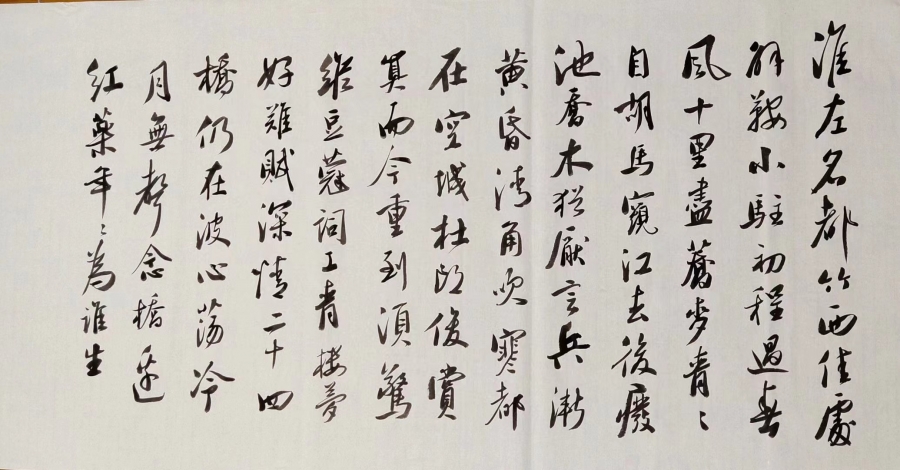 淮左名都竹西佳處
解鞍小駐初程過春
風十里盡薺麥青〻
自胡馬窺江去後廢
池喬木猶厭言兵漸
黄昏清角吹寒都
在空城杜郎俊賞
算而今重到須驚
縱豆蔻詞工青樓夢
好難賦深情二十四
橋仍在波心蕩冷
月無聲念橋邊
紅藥年〻為誰生